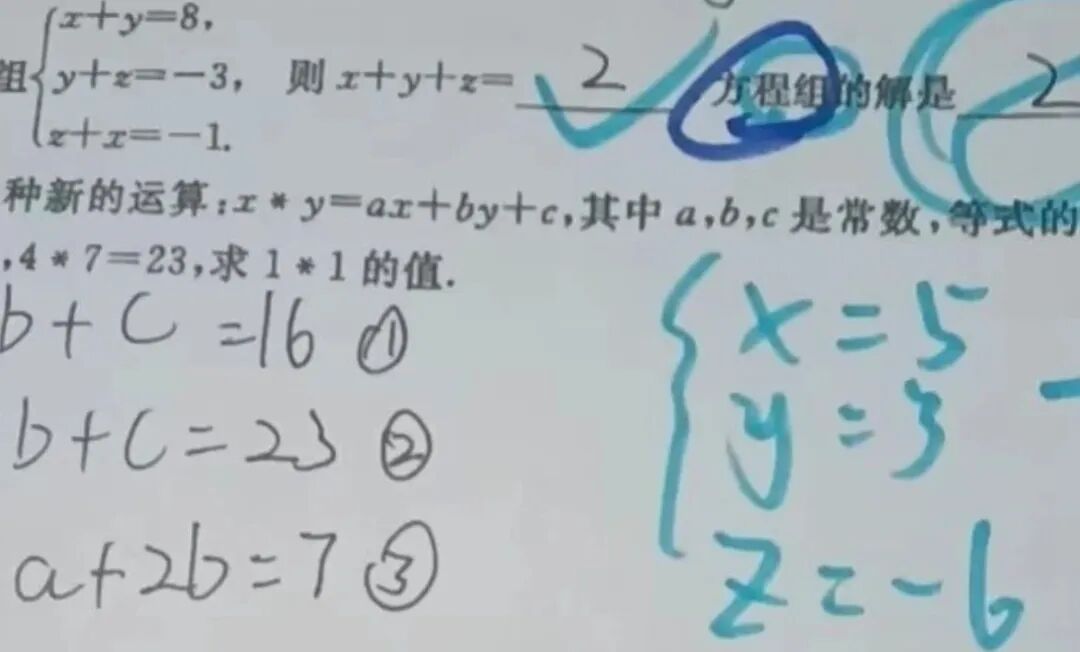 x+y=8,
组 y+z=-3, 则 x+y+z= 2 方程组的解是 2
z+x=-1.
种新的运算:x*y=ax+by+c,其中 a,b,c 是常数,等式的
,4*7=23,求 1*1 的值.
b+C=16 ①
b+C=23 ②
a+2b=7 ③
x=5
y=3
z=-6